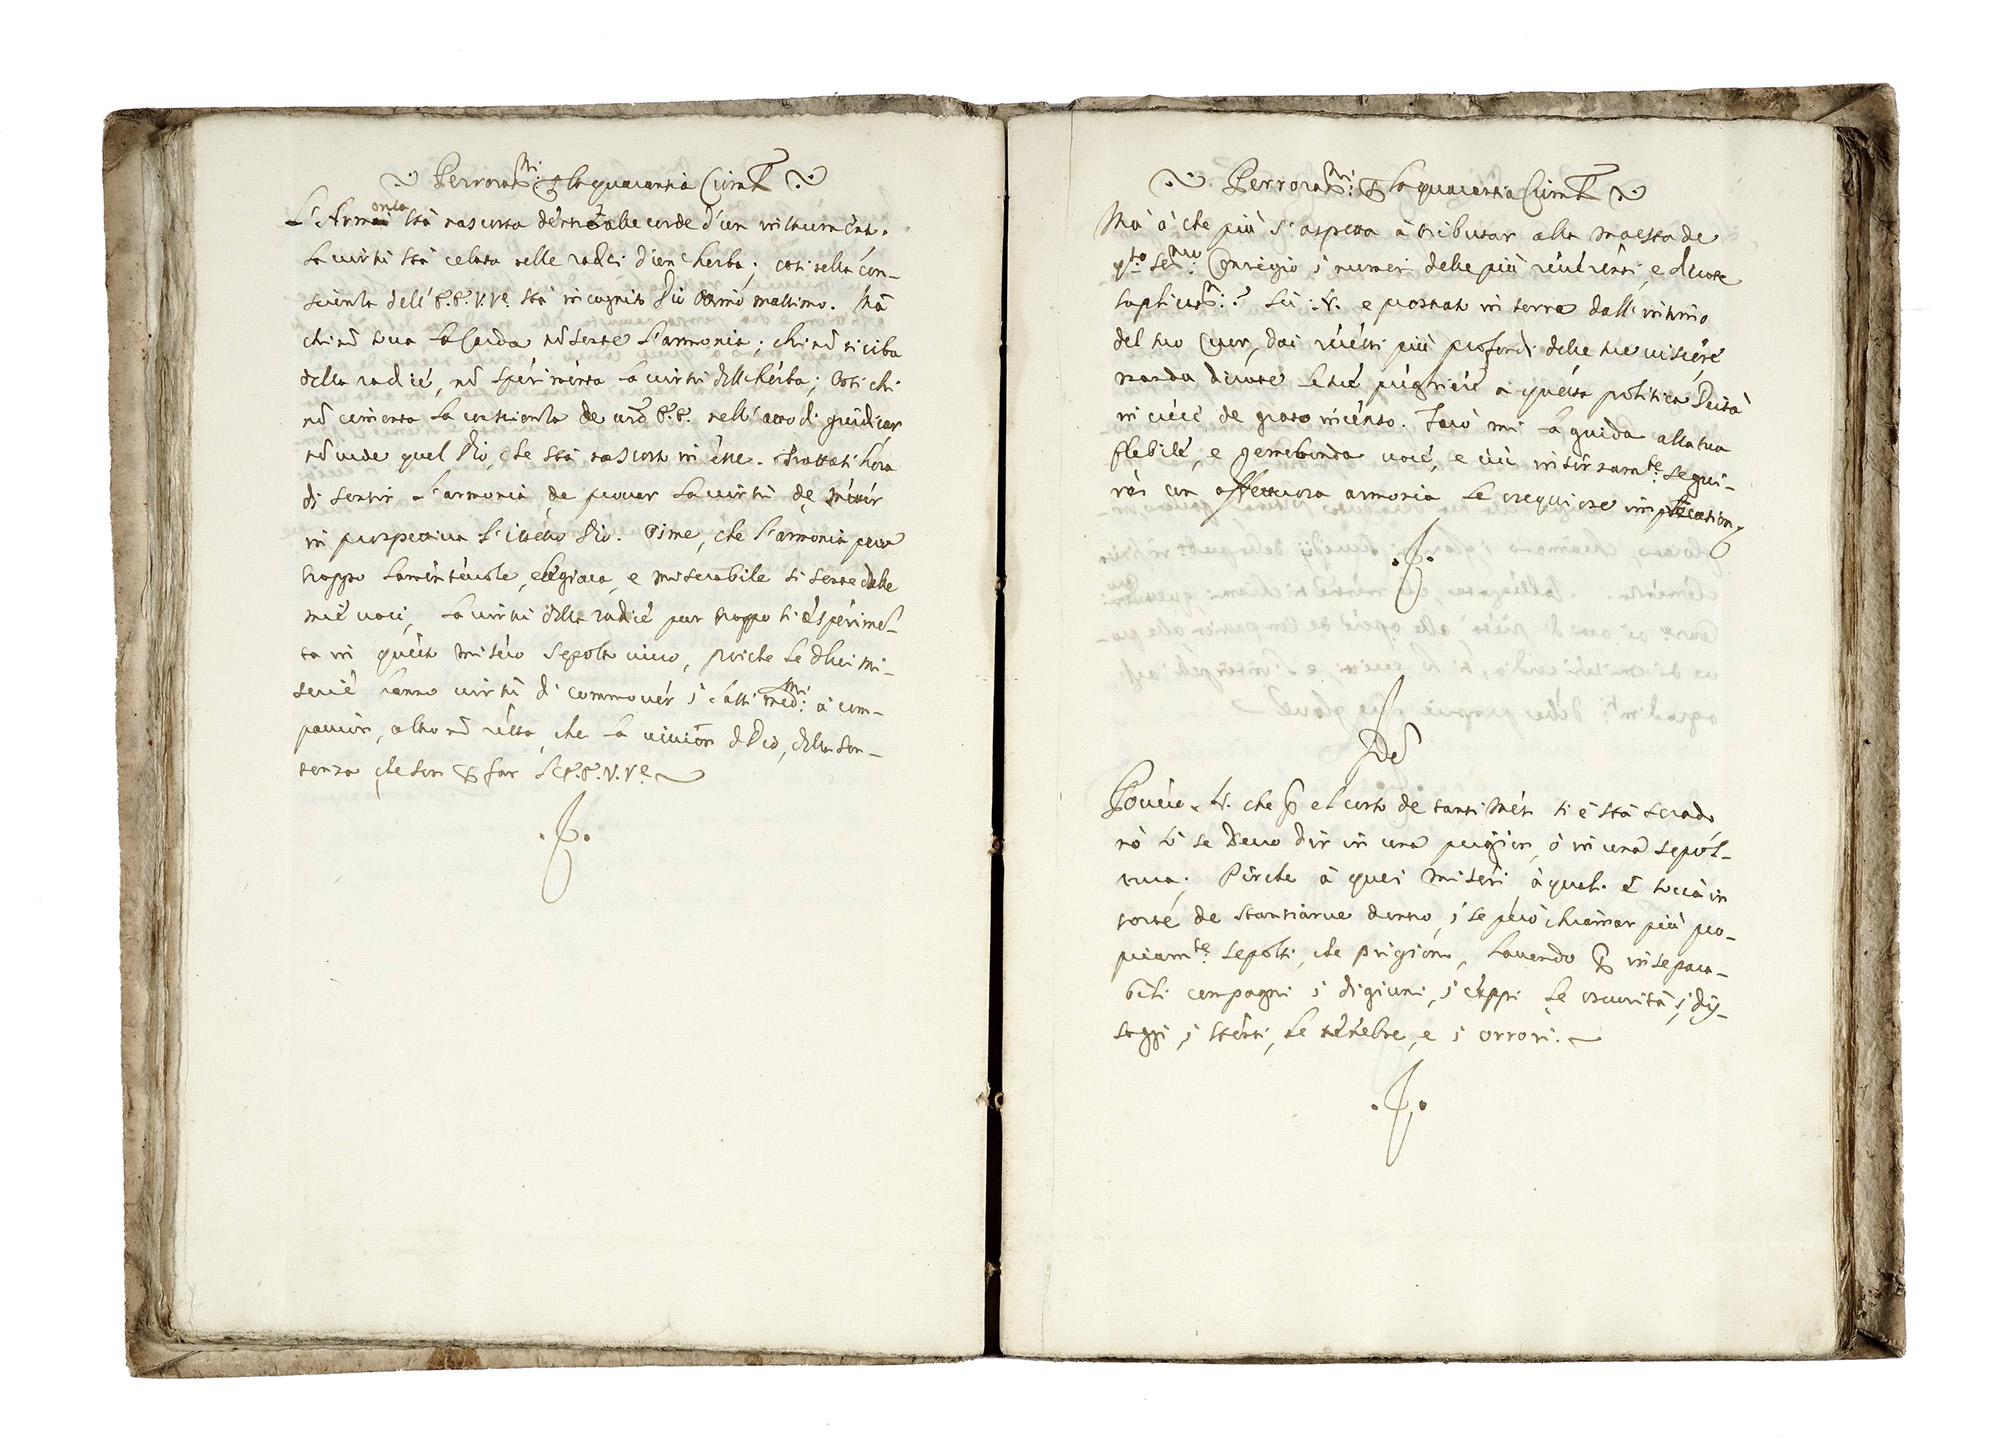 Perroraõni: ꝑ la quarantia Crimĩl
L'Armonia stà nascosta dentro alle corde d'un instrumento.
La virtù stà celata nelle radici d'un herba; così nella con-
scienza dell' E.E. V.Vᵉ. stà incognito Dio Ottimo massimo. Mà
chi nõ tocca la Corda nõ sente l'armonia; chi nõ si ciba
della radice, nõ sperimenta la virtù dell'herba; così chi
nõ cimenta la conscienza de VV. E.E. nell'atto di giudicar
nõ vede quel Dio, che stà nascosto in esse. Trattasi hora
di sentir l'armonia, de provar la virtù, de metter
in prospettiva l'istesso Dio. Oime, che l'armonia pur
troppo lamentevole, elegiaca, e miserabile si sente dalle
mie voci, la virtù della radice pur troppo si esperimen-
ta in questo misero sepolto vivo, poiche le di lui mi-
serie hanno virtù di commover i sassi med.ᵐⁱ à com-
passion, altro nõ resta, che la vision de Dio, della sen-
tenza che son ꝑ far l'E.E. V.Vᵉ.
Perroraõni: ꝑ la quarantia Crimĩl
Mà à che più s'aspetta à tributar alla maestà de
qᵗᵒ. Seᵐᵒ: Conseglio i numeri delle più reverenti, e devote
suplicaõni? Sù: N. e prostrato in terra dall' intimo
del tuo Cuor, dai recessi più profondi delle tue viscere
manda divote le tue preghiere à questa politica Deità
in vece de grato incenso. Farò mi la guida alla tua
flebile, e gemebonda voce, e ti incessanᵗᵉ. segui-
rai con affettuosa armonia le ossequiose imprecation
De
Povero N. che ꝑ el corso de tanti mesi ti è stà serado
nò sò se devo dir in una preggion, ò in una sepol-
tura; Perche à quei miseri à quali è toccà in
sorte de stantiarve dentro, i se può chiamar più pro-
priamᵗᵉ. sepolti, che prigioni, havendo ꝑ insepara-
bili compagni i digiuni, i ceppi le oscurità, i dis-
saggi, i stenti, le tenebre, e i orrori.